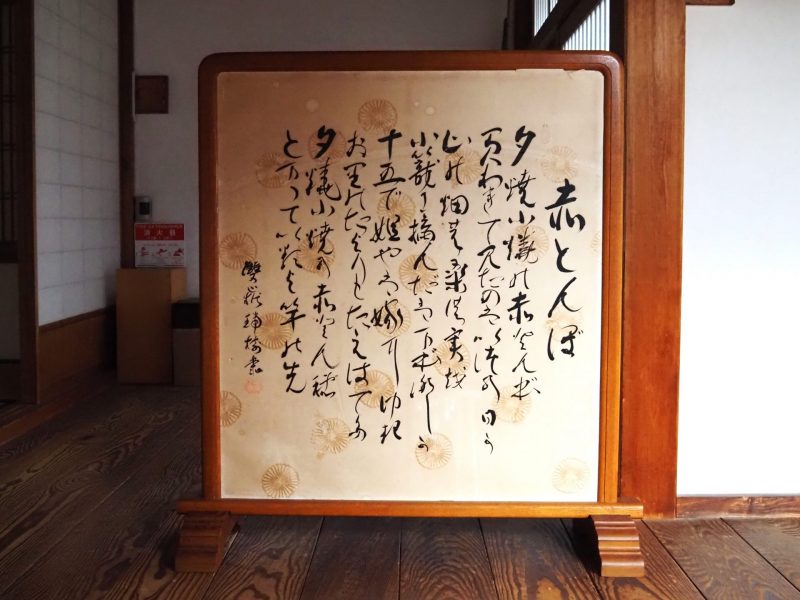 赤とんぼ
夕焼小焼の赤とんぼ
おわれて見たのはいつの日か
山の畑の桑の実を
小籠に摘んだはまぼろしか
十五で姐やは嫁に ゆき
お里のたよりもたえはてた
夕焼小焼の赤とんぼ
とまっているよ竿の先
消火器